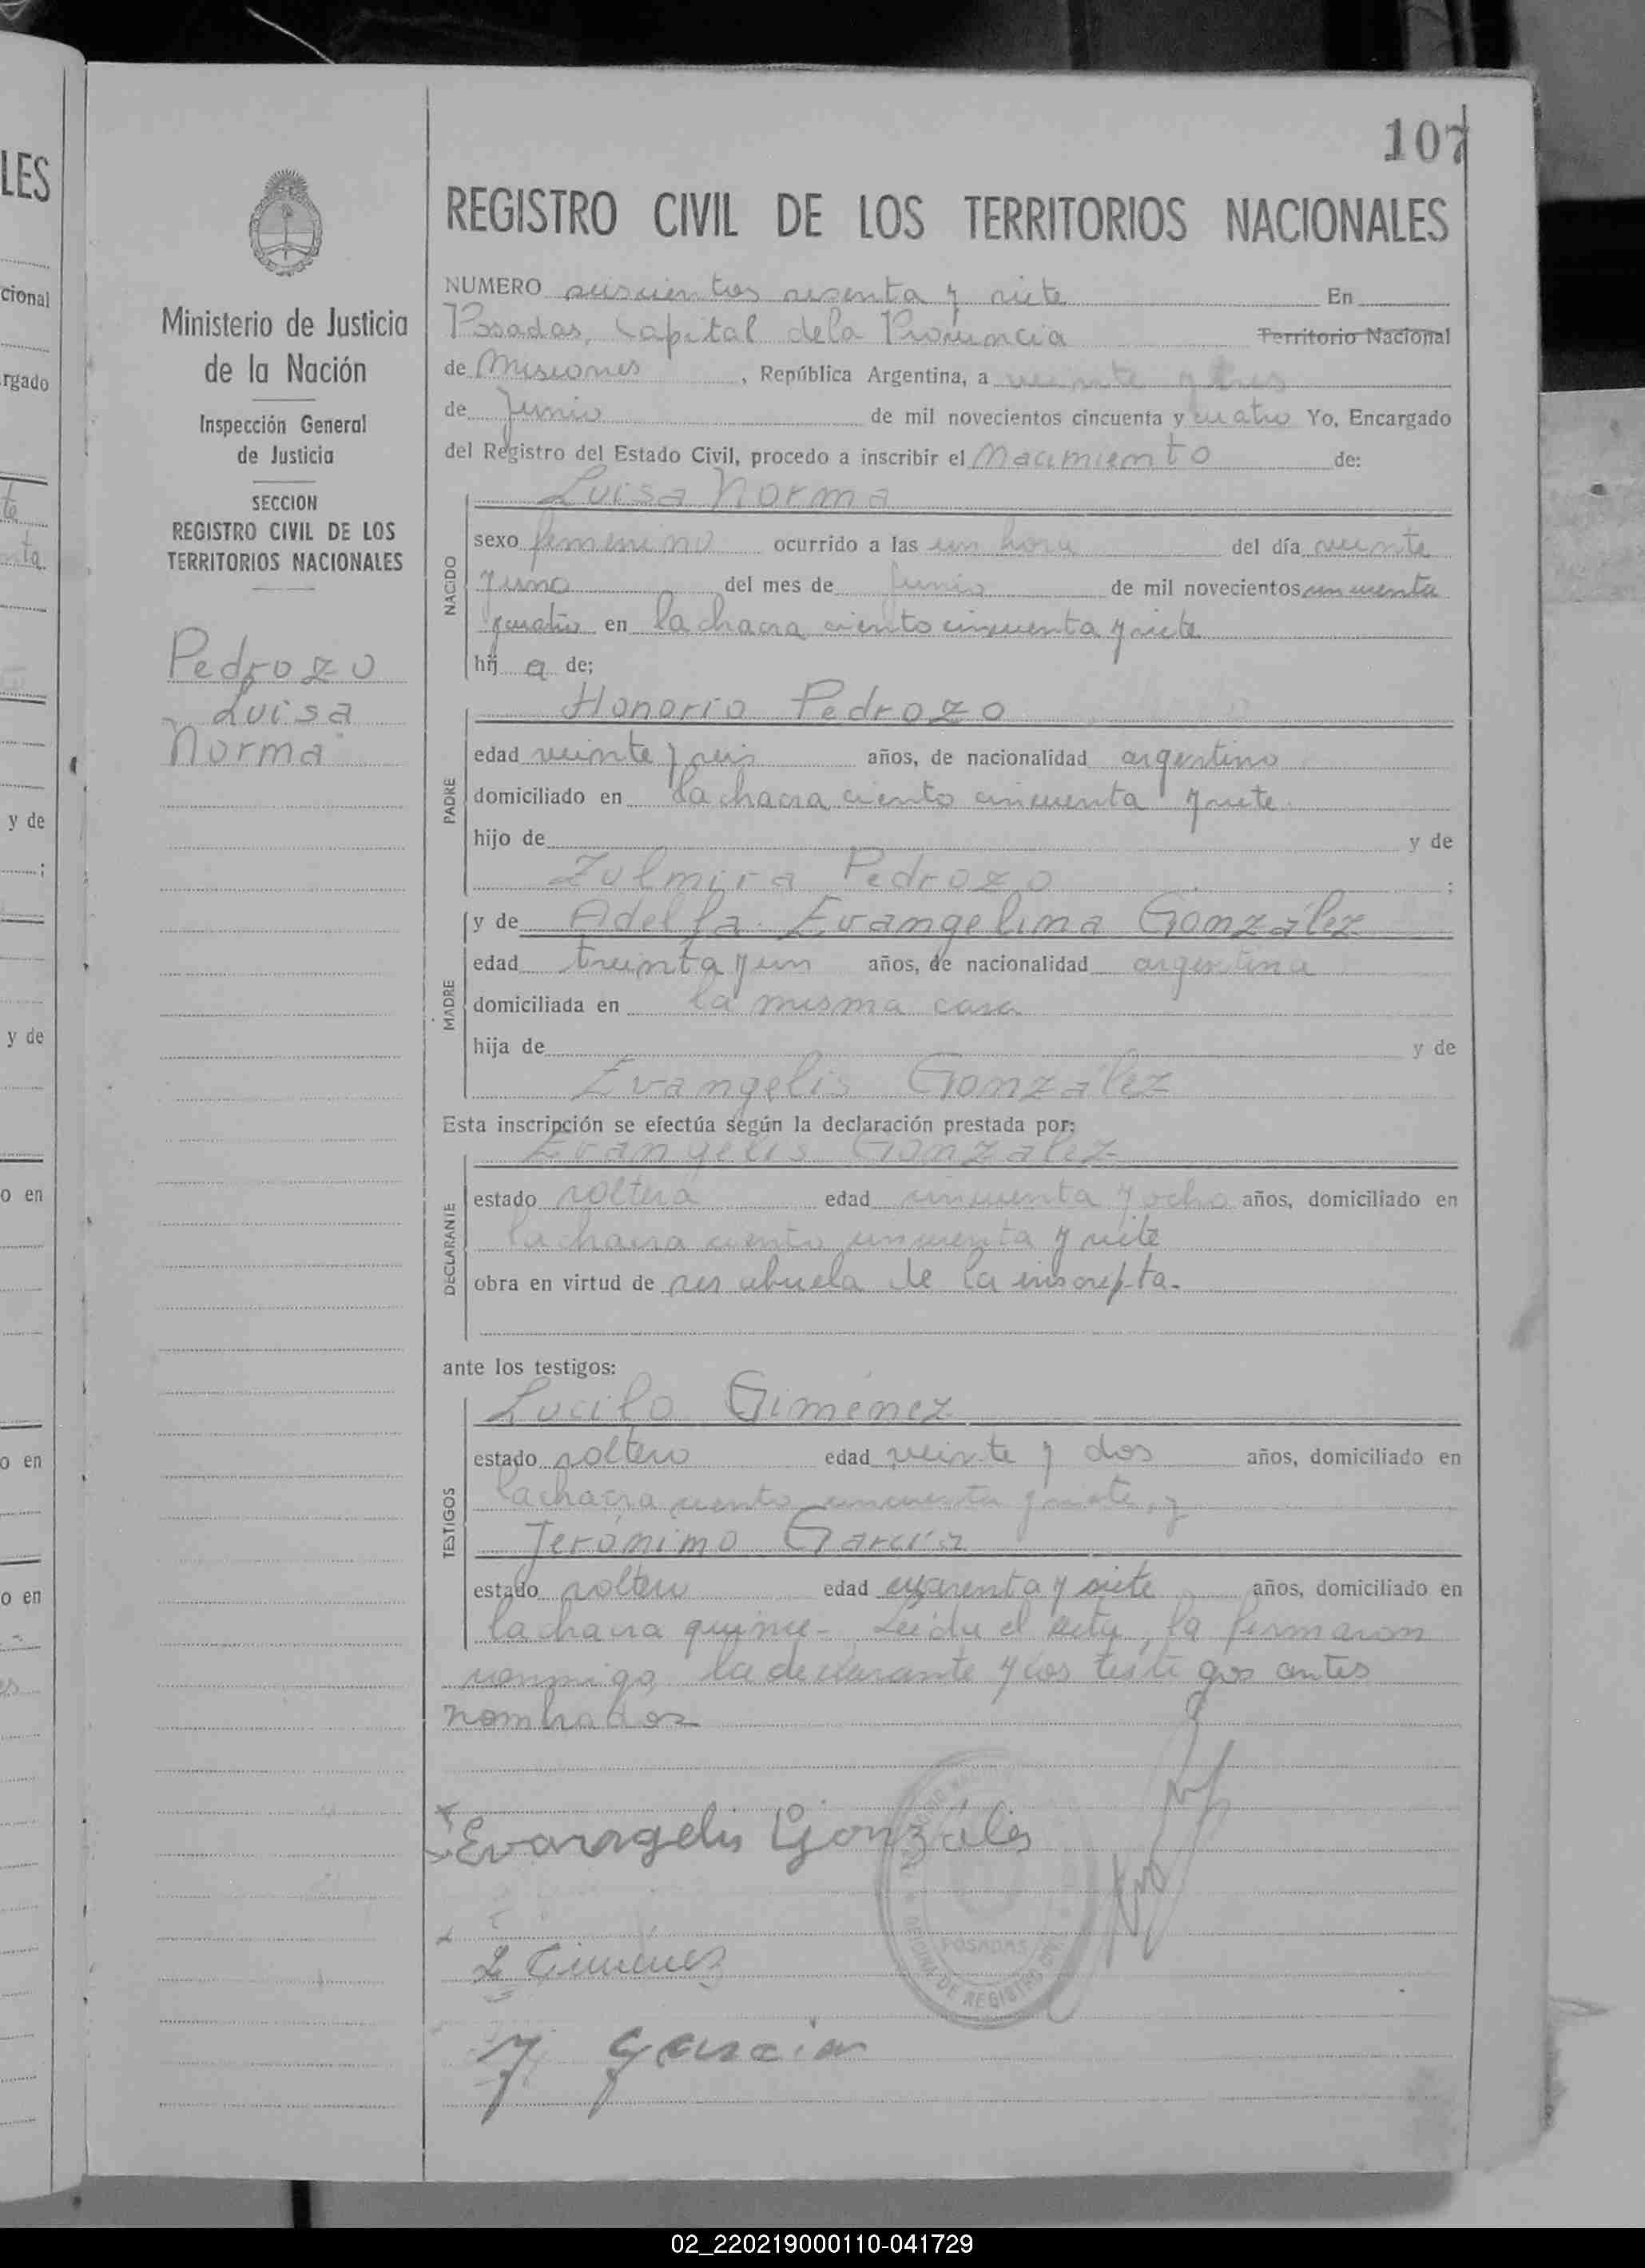 107
REGISTRO CIVIL DE LOS TERRITORIOS NACIONALES
Ministerio de Justicia
de la Nación
Inspección General
de Justicia
SECCION
REGISTRO CIVIL DE LOS
TERRITORIOS NACIONALES
Pedrozo
Luisa
Norma
NUMERO seiscientos sesenta y siete En
Posadas, Capital de la Provincia Territorio Nacional
de Misiones, República Argentina, a veinte y tres
de Junio de mil novecientos cincuenta y cuatro Yo, Encargado
del Registro del Estado Civil, procedo a inscribir el Nacimiento de:
NACIDO
Luisa Norma
sexo femenino ocurrido a las un hora del día veinte
y uno del mes de Junio de mil novecientos cincuenta
y cuatro en la chacra ciento cincuenta y siete
hij a de;
PADRE
Honorio Pedrozo
edad veinte y seis años, de nacionalidad argentino
domiciliado en la chacra ciento cincuenta y siete
hijo de y de
Zulmira Pedrozo ;
MADRE
y de Adelfa Evangelina González
edad treinta y un años, de nacionalidad argentina
domiciliada en la misma casa
hija de y de
Evangelis González
Esta inscripción se efectúa según la declaración prestada por:
DECLARANTE
Evangelis González
estado soltera edad cincuenta y ocho años, domiciliado en
la chacra ciento cincuenta y siete
obra en virtud de ser abuela de la inscripta.
ante los testigos:
TESTIGOS
Lucilo Giménez
estado soltero edad veinte y dos años, domiciliado en
la chacra ciento cincuenta y siete, y
Jerónimo García
estado soltero edad cuarenta y siete años, domiciliado en
la chacra quince - Leída el acta, la firmaron
conmigo, la declarante y los testigos antes
nombrados
Evangelis Gonzáles
POSADAS
OFICINA DE REGISTRO
L Giménez
J Garcia
LES
cional
rgado
y de
y de
o en
o en
o en
02_220219000110-041729